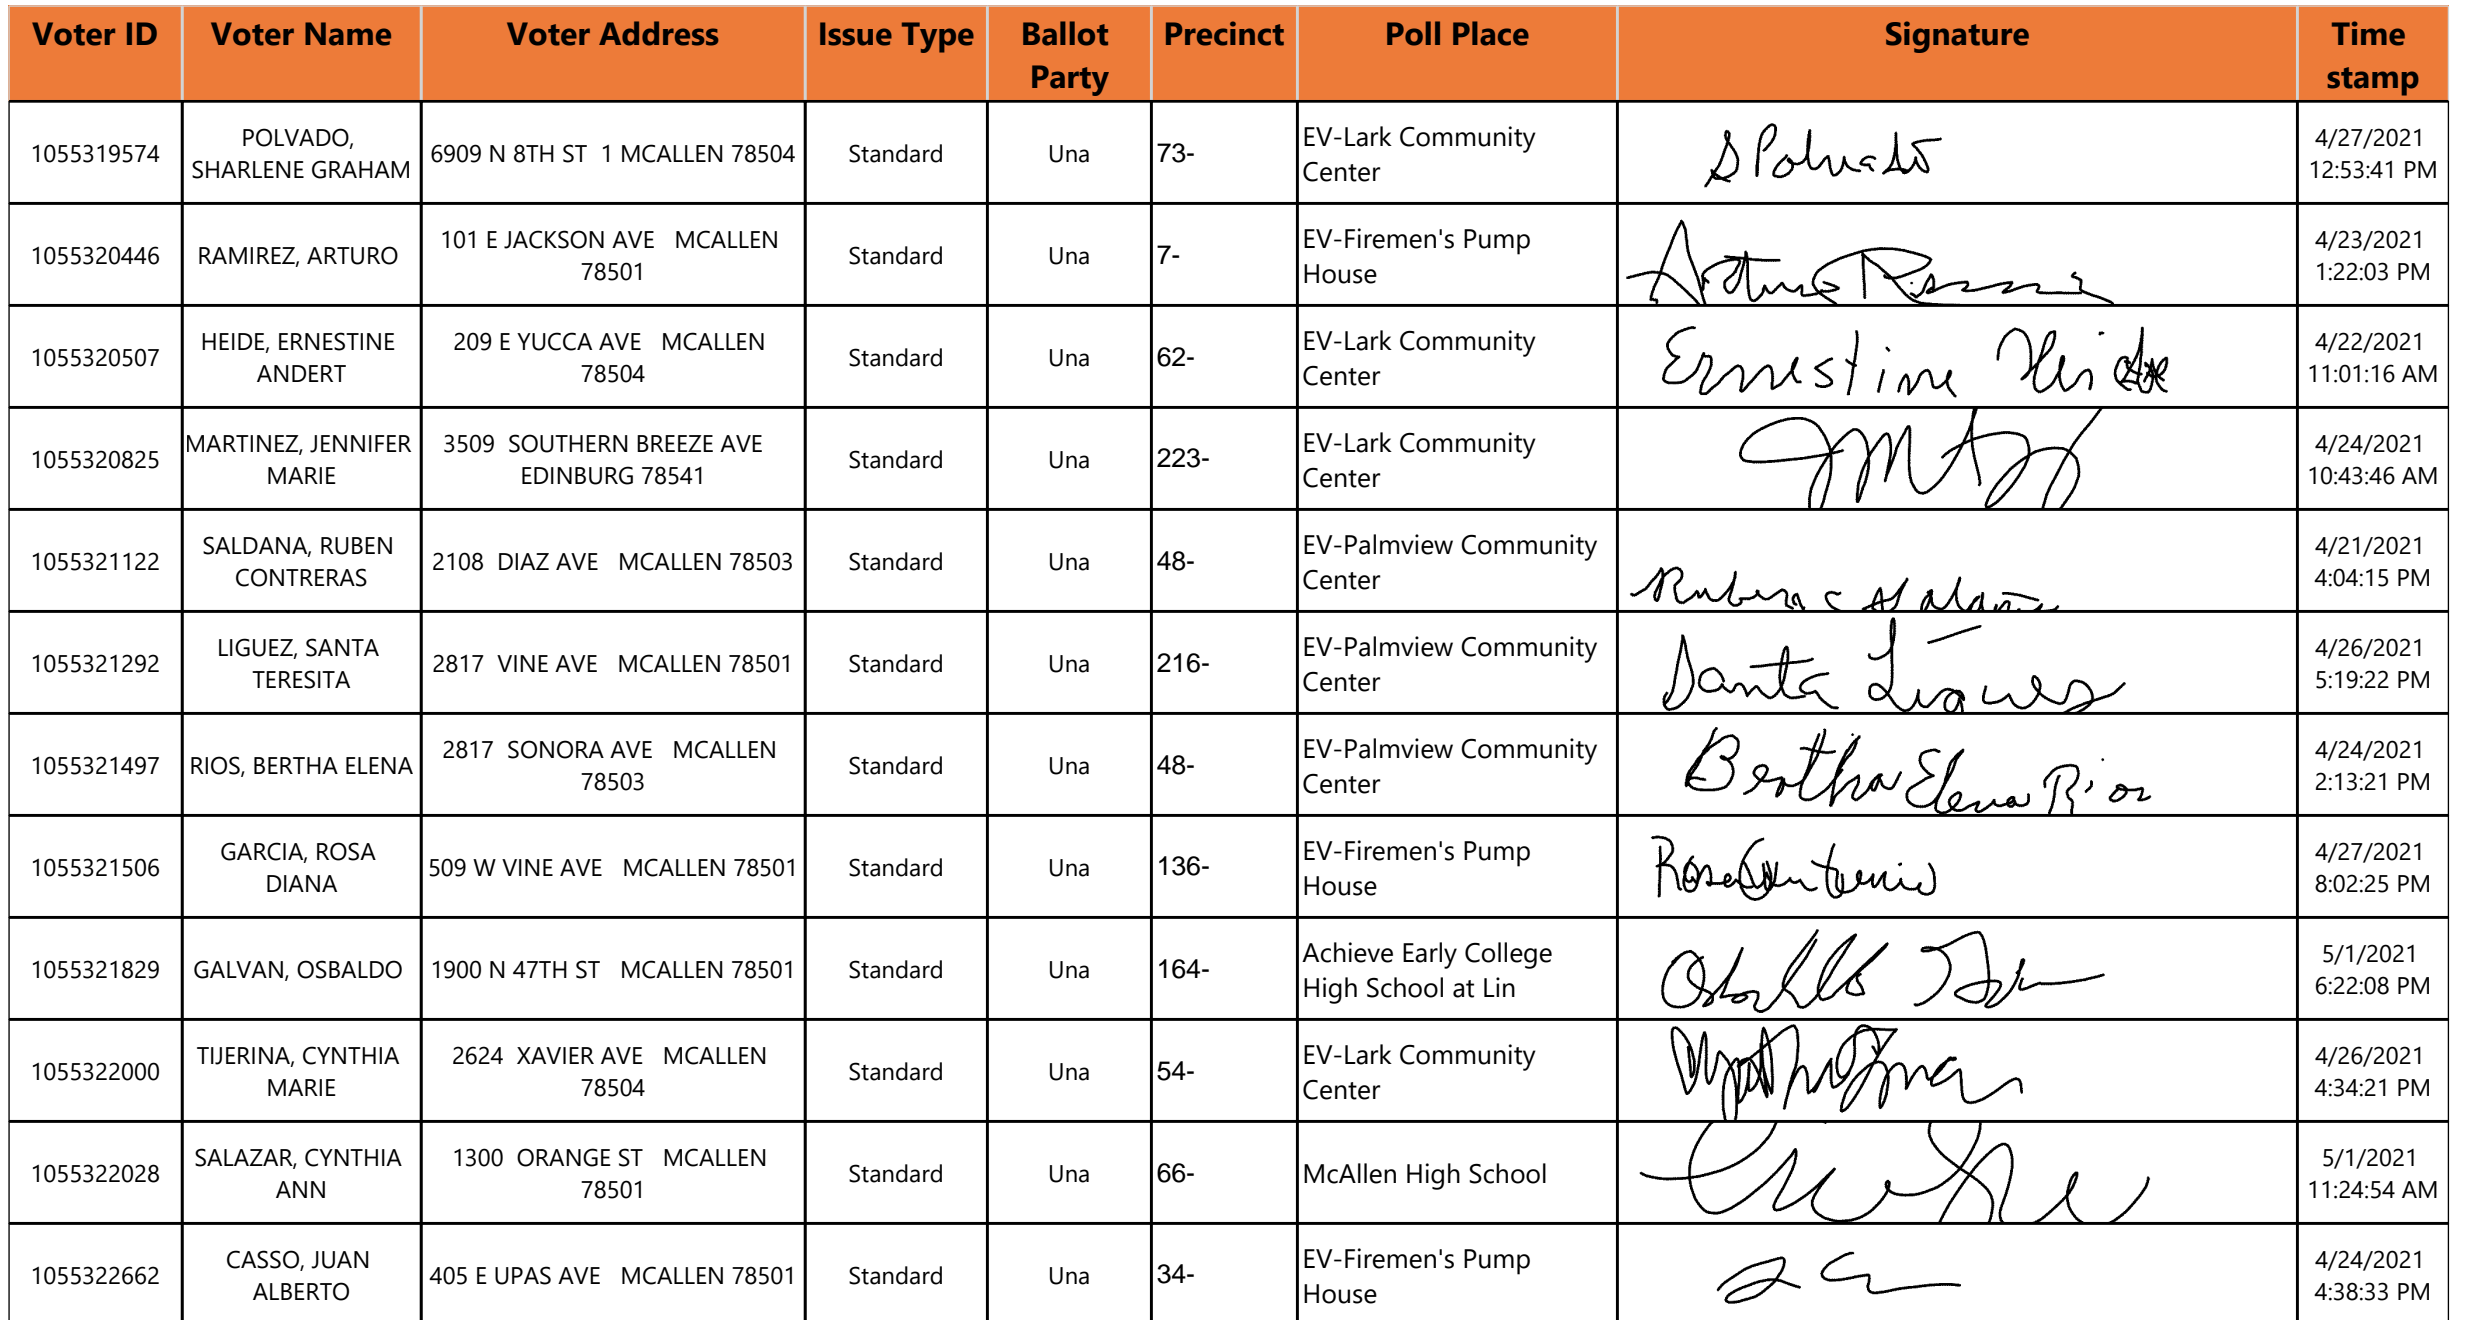 Voter ID Voter Name Voter Address Issue Type Ballot Party Precinct Poll Place Signature Time stamp
1055319574 POLVADO, SHARLENE GRAHAM 6909 N 8TH ST 1 MCALLEN 78504 Standard Una 73- EV-Lark Community Center S Polvado 4/27/2021 12:53:41 PM
1055320446 RAMIREZ, ARTURO 101 E JACKSON AVE MCALLEN 78501 Standard Una 7- EV-Firemen's Pump House Arturo 4/23/2021 1:22:03 PM
1055320507 HEIDE, ERNESTINE ANDERT 209 E YUCCA AVE MCALLEN 78504 Standard Una 62- EV-Lark Community Center Ernestine Heide 4/22/2021 11:01:16 AM
1055320825 MARTINEZ, JENNIFER MARIE 3509 SOUTHERN BREEZE AVE EDINBURG 78541 Standard Una 223- EV-Lark Community Center 4/24/2021 10:43:46 AM
1055321122 SALDANA, RUBEN CONTRERAS 2108 DIAZ AVE MCALLEN 78503 Standard Una 48- EV-Palmview Community Center Ruben C Saldana 4/21/2021 4:04:15 PM
1055321292 LIGUEZ, SANTA TERESITA 2817 VINE AVE MCALLEN 78501 Standard Una 216- EV-Palmview Community Center Santa Liguez 4/26/2021 5:19:22 PM
1055321497 RIOS, BERTHA ELENA 2817 SONORA AVE MCALLEN 78503 Standard Una 48- EV-Palmview Community Center Bertha Elena Rios 4/24/2021 2:13:21 PM
1055321506 GARCIA, ROSA DIANA 509 W VINE AVE MCALLEN 78501 Standard Una 136- EV-Firemen's Pump House Rosa 4/27/2021 8:02:25 PM
1055321829 GALVAN, OSBALDO 1900 N 47TH ST MCALLEN 78501 Standard Una 164- Achieve Early College High School at Lin Osbaldo 5/1/2021 6:22:08 PM
1055322000 TIJERINA, CYNTHIA MARIE 2624 XAVIER AVE MCALLEN 78504 Standard Una 54- EV-Lark Community Center 4/26/2021 4:34:21 PM
1055322028 SALAZAR, CYNTHIA ANN 1300 ORANGE ST MCALLEN 78501 Standard Una 66- McAllen High School 5/1/2021 11:24:54 AM
1055322662 CASSO, JUAN ALBERTO 405 E UPAS AVE MCALLEN 78501 Standard Una 34- EV-Firemen's Pump House 4/24/2021 4:38:33 PM